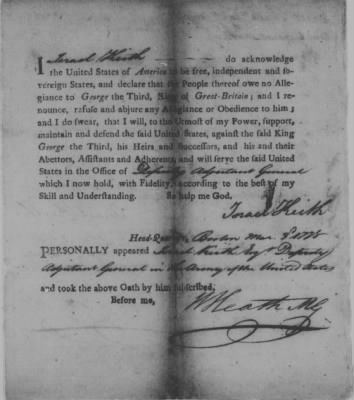 I Israel Keith do acknowledge
the United States of America to be free, independent and so-
vereign States, and declare that the People thereof owe no Alle-
giance to George the Third, King of Great-Britain; and I re-
nounce, refuse and abjure any Allegiance or Obedience to him;
and I do swear, that I will, to the Utmost of my Power, support,
maintain and defend the said United States, against the said King
George the Third, his Heirs and Successors, and his and their
Abettors, Assistants and Adherents, and will serve the said United
States in the Office of Deputy Adjutant General
which I now hold, with Fidelity, according to the best of my
Skill and Understanding. So help me God.
Israel Keith
Head-Quarters, Boston Mar. 1778
PERSONALLY appeared Israel Keith Esqr Deputy
Adjutant General in the Army of the United States
and took the above Oath by him subscribed.
Before me,
W Heath MG